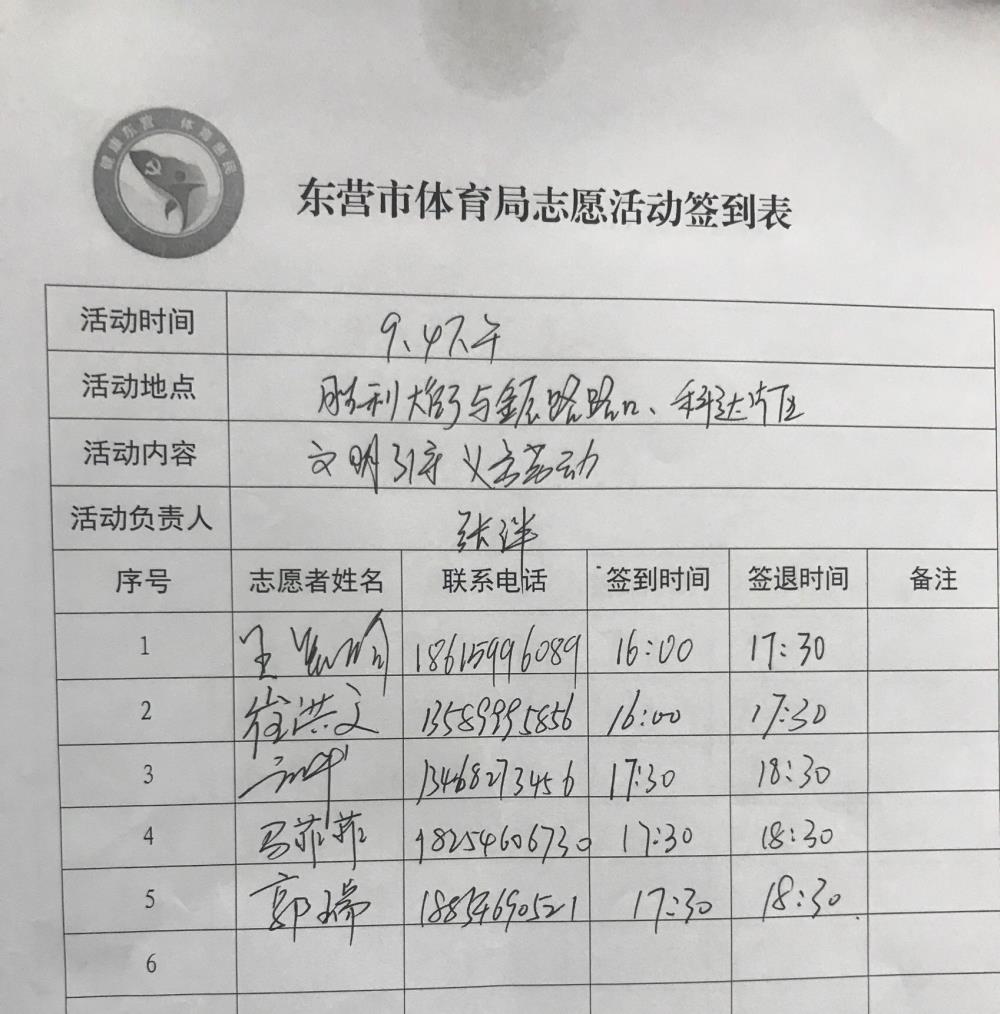 健康东营 体育惠民
东营市体育局志愿活动签到表
活动时间 9、4下午
活动地点 胜利大街与金辰路路口、科达片区
活动内容 文明引导 义务劳动
活动负责人 张洋
序号 志愿者姓名 联系电话 签到时间 签退时间 备注
1 王 18615996089 16:00 17:30
2 崔洪文 13589995856 16:00 17:30
3 13468273456 17:30 18:30
4 马菲菲 18254606730 17:30 18:30
5 郭瑞 18834690521 17:30 18:30
6